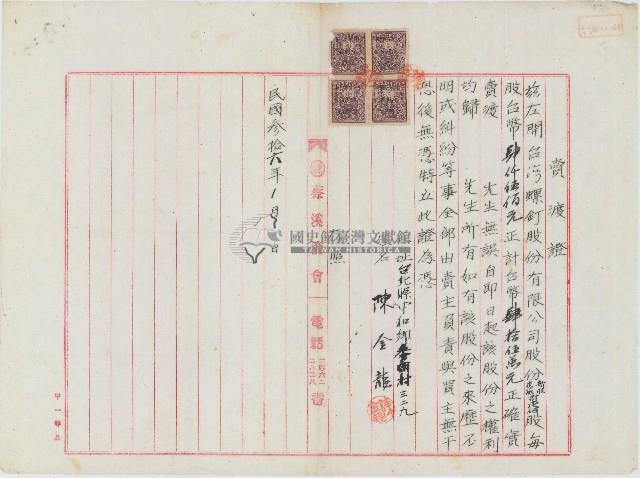 賣渡證
茲左開台灣螺釘股份有限公司股份 股每
股台幣肆仟伍佰元正計台幣肆拾伍萬元正確實
賣渡 先生無誤自即日起該股份之權利
均歸 先生所有如有該股份之來歷不
明或糾紛等事全部由賣主負責與買主無干
恐後無憑特立此證為憑
址台北縣中和鄉 村三二九
名 陳金龍
照
民國參拾六年1月 日
國史館臺灣文獻館
TAIWAN HISTORICA
溪 會 電話